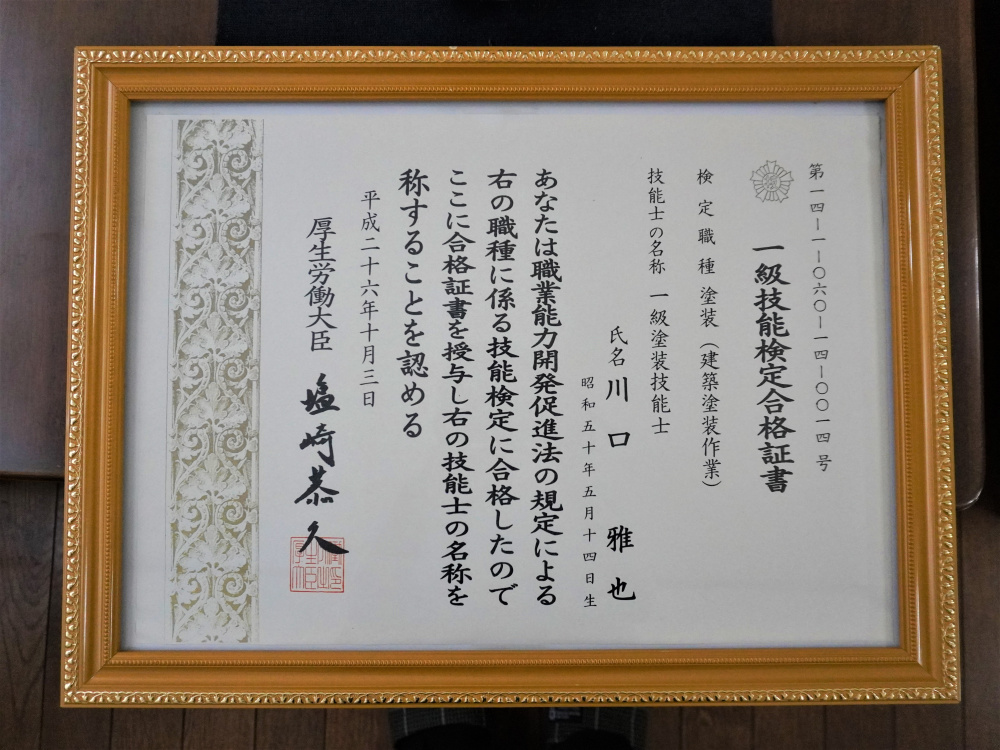 第一四―一―〇六〇―一四―〇〇一四号
一級技能検定合格証書
検定職種 塗装（建築塗装作業）
技能士の名称 一級塗装技能士
氏名 川口 雅也
昭和五十年五月十四日生
あなたは職業能力開発促進法の規定による
右の職種に係る技能検定に合格したので
ここに合格証書を授与し右の技能士の名称を
称することを認める
平成二十六年十月三日
厚生労働大臣 塩崎恭久